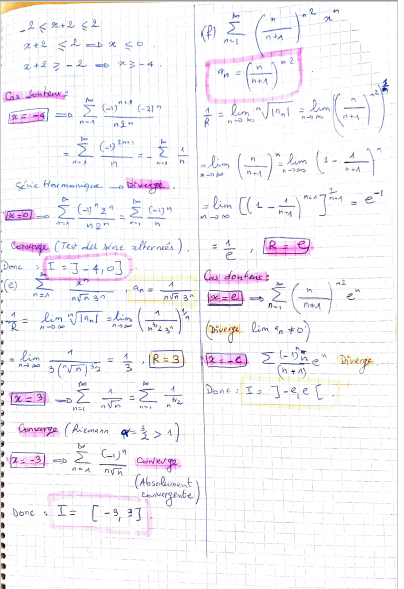 -2 ≤ x+2 ≤ 2
x+2 ≤ 2 ⟹ x ≤ 0.
x+2 ≥ -2 ⟹ x ≥ -4.
Cas douteux:
x=-4 ⟹ \sum_{n=1}^{\infty} \frac{(-1)^{n+1} (-2)^n}{n 2^n}
= \sum_{n=1}^{\infty} \frac{(-1)^{2n+1}}{n} = -\sum_{n=1}^{\infty} \frac{1}{n}
Série Harmonique → Diverge.
x=0 ⟹ \sum_{n=1}^{\infty} \frac{(-1)^n 2^n}{n 2^n} = \sum_{n=1}^{\infty} \frac{(-1)^n}{n}
Converge (Test des série alternées).
Donc : I = ]-4,0]
(e) \sum_{n=1}^{\infty} \frac{x^n}{n\sqrt{n} 3^n} , a_n = \frac{1}{n\sqrt{n} 3^n}
\frac{1}{R} = \lim_{n→∞} \sqrt[n]{|a_n|} = \lim_{n→∞} \left(\frac{1}{n^{3/2} 3^n}\right)^{1/n}
= \lim_{n→∞} \frac{1}{3(\sqrt[n]{n})^{3/2}} = \frac{1}{3} , R = 3
x=3 ⟹ \sum_{n=1}^{\infty} \frac{1}{n\sqrt{n}} = \sum_{n=1}^{\infty} \frac{1}{n^{3/2}}
Converge (Riemann α = \frac{3}{2} > 1)
x=-3 ⟹ \sum_{n=1}^{\infty} \frac{(-1)^n}{n\sqrt{n}} Converge
(Absolument convergente)
Donc : I = [-3, 3]
(f) \sum_{n=1}^{\infty} \left(\frac{n}{n+1}\right)^{n^2} x^n
a_n = \left(\frac{n}{n+1}\right)^{n^2}
\frac{1}{R} = \lim_{n→∞} \sqrt[n]{|a_n|} = \lim_{n→∞} \left(\left(\frac{n}{n+1}\right)^{n^2}\right)^{\frac{1}{n}}
= \lim_{n→∞} \left(\frac{n}{n+1}\right)^n = \lim_{n→∞} \left(1 - \frac{1}{n+1}\right)^n
= \lim_{n→∞} \left[\left(1 - \frac{1}{n+1}\right)^{n+1}\right]^{\frac{n}{n+1}} = e^{-1}
= \frac{1}{e} , R = e
Cas douteux :
x=e ⟹ \sum_{n=1}^{\infty} \left(\frac{n}{n+1}\right)^{n^2} e^n
(Diverge lim a_n ≠ 0)
x=-e \sum \frac{(-1)^n n}{(n+1)} e^n Diverge.
Donc : I = ]-e, e[.